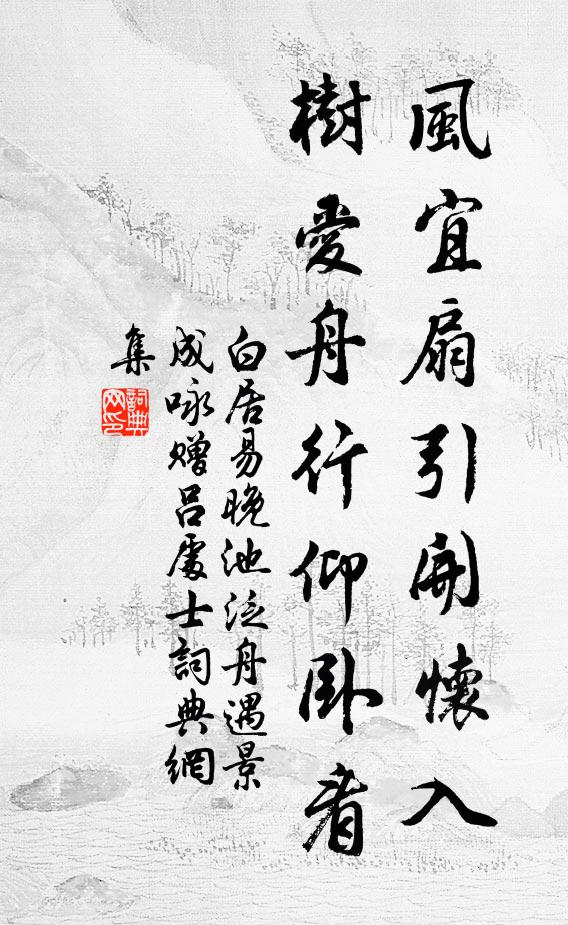 風宜扇引開懷入
樹愛舟行仰卧看
白居易晚池泛舟遇景
成咏贈呂處士詞典網
集
詞典
网印